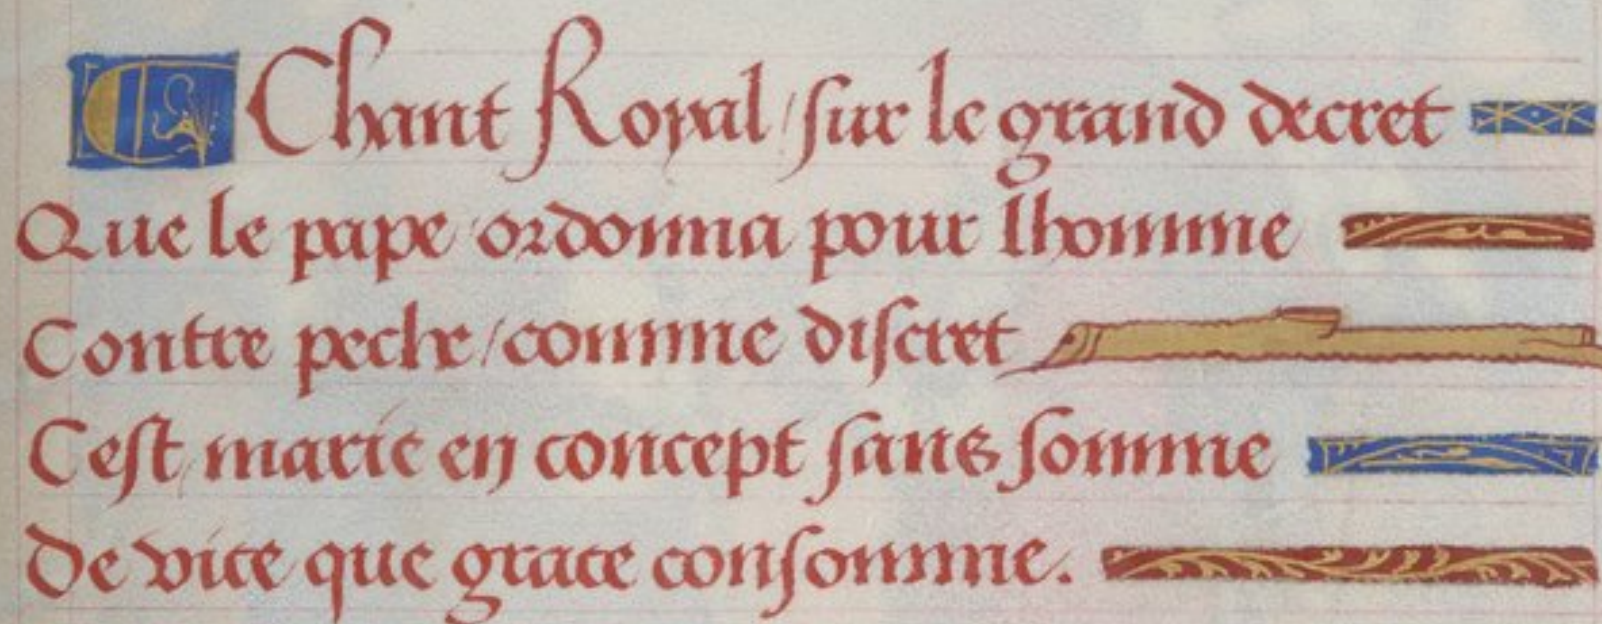 Chant Royal / sur le grand decret
Que le pape ordonna pour lhomme
Contre peche / comme discret
Cest marie en concept sans somme
De vice que grace consomme.